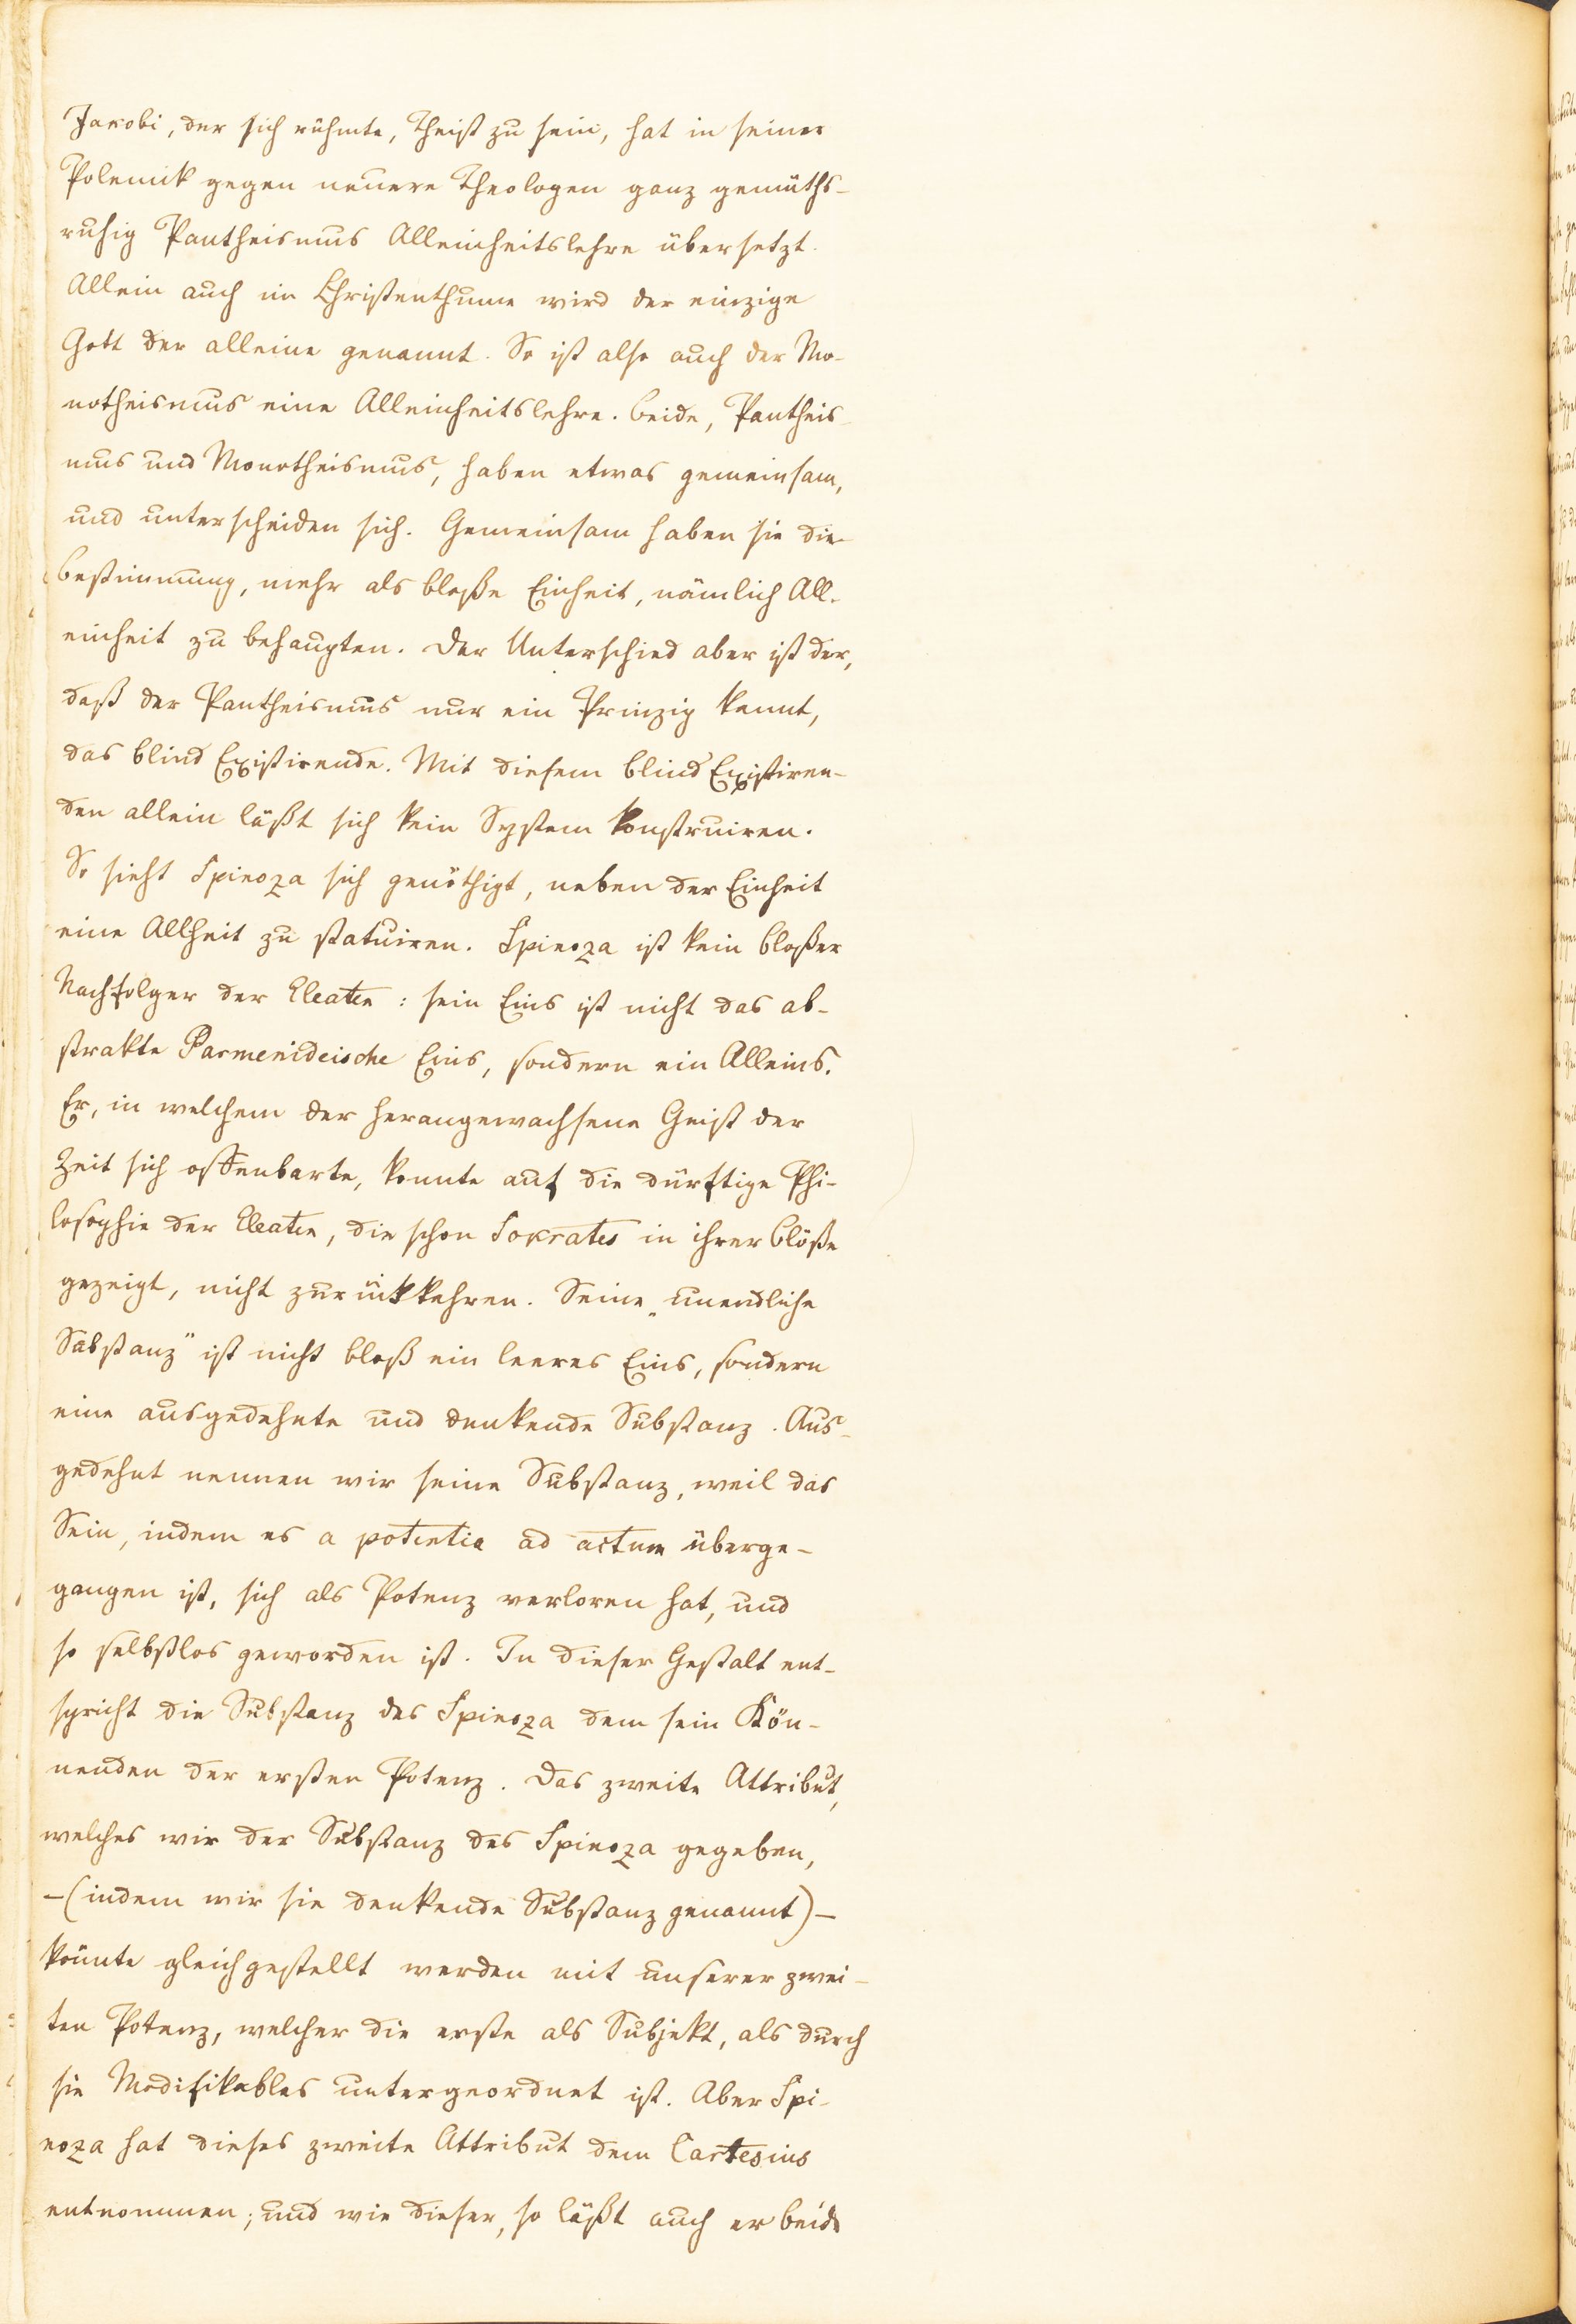 Jakobi, der sich rühmte, Theist zu sein, hat in seiner
Polemik gegen neuere Theologen ganz gemüths-
ruhig Pantheismus Alleinheitslehre übersetzt.
Allein auch im Christenthume wird der einzige
Gott der alleine genannt. So ist also auch der Mo-
notheismus eine Alleinheitslehre. Beide, Pantheis-
mus und Monotheismus, haben etwas gemeinsam,
und unterscheiden sich. Gemeinsam haben sie die
Bestimmung, mehr als bloße Einheit, nämlich All-
einheit zu behaupten. Der Unterschied aber ist der,
daß der Pantheismus nur ein Prinzip kennt,
das blind Existirende. Mit diesem blind Existiren-
den allein läßt sich kein System konstruiren.
So sieht Spinoza sich genöthigt, neben der Einheit
eine Allheit zu statuiren. Spinoza ist kein bloßer
Nachfolger der Eleaten: sein Eins ist nicht das ab-
strakte Parmenideische Eins, sondern ein Alleins.
Er, in welchem der herangewachsene Geist der
Zeit sich offenbarte, konnte auf die dürftige Phi-
losophie der Eleaten, die schon Sokrates in ihrer Blöße
gezeigt, nicht zurükkehren. Seine „unendliche
Substanz" ist nicht bloß ein leeres Eins, sondern
eine ausgedehnte und denkende Substanz. Aus-
gedehnt nennen wir seine Substanz, weil das
Sein, indem es a potentia ad actum überge-
gangen ist, sich als Potenz verloren hat, und
so selbstlos geworden ist. In dieser Gestalt ent-
spricht die Substanz des Spinoza dem sein Kön-
nenden der ersten Potenz. Das zweite Attribut,
welches wir der Substanz des Spinoza gegeben,
-(indem wir sie denkende Substanz genannt)-
könnte gleichgestellt werden mit unserer zwei-
ten Potenz, welcher die erste als Subjekt, als durch
sie Modifikables untergeordnet ist. Aber Spi-
noza hat dieses zweite Attribut dem Cartesius
entnommen; und wie dieser, so läßt auch er beide